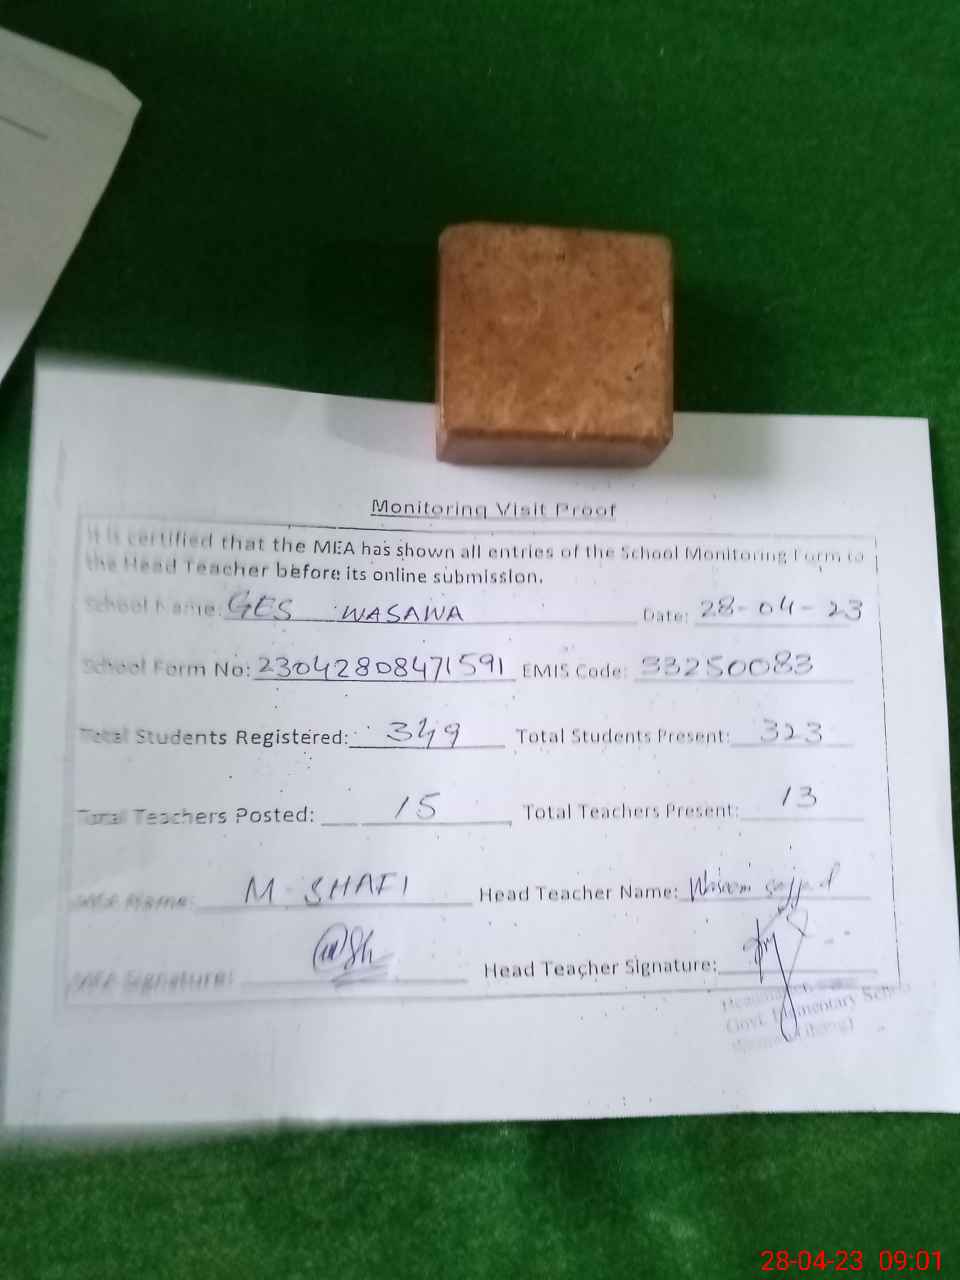 Monitoring Visit Proof
It is certified that the MEA has shown all entries of the School Monitoring Form to
the Head Teacher before its online submission.
School Name: GES WASAWA Date: 28-04-23
School Form No: 23042808471591 EMIS Code: 33250083
Total Students Registered: 349 Total Students Present: 323
Total Teachers Posted: 15 Total Teachers Present: 13
MEA Name: M. SHAFI Head Teacher Name: Waseem Sajjad
MEA Signature: Head Teacher Signature:
Govt. Elementary School
28-04-23 09:01